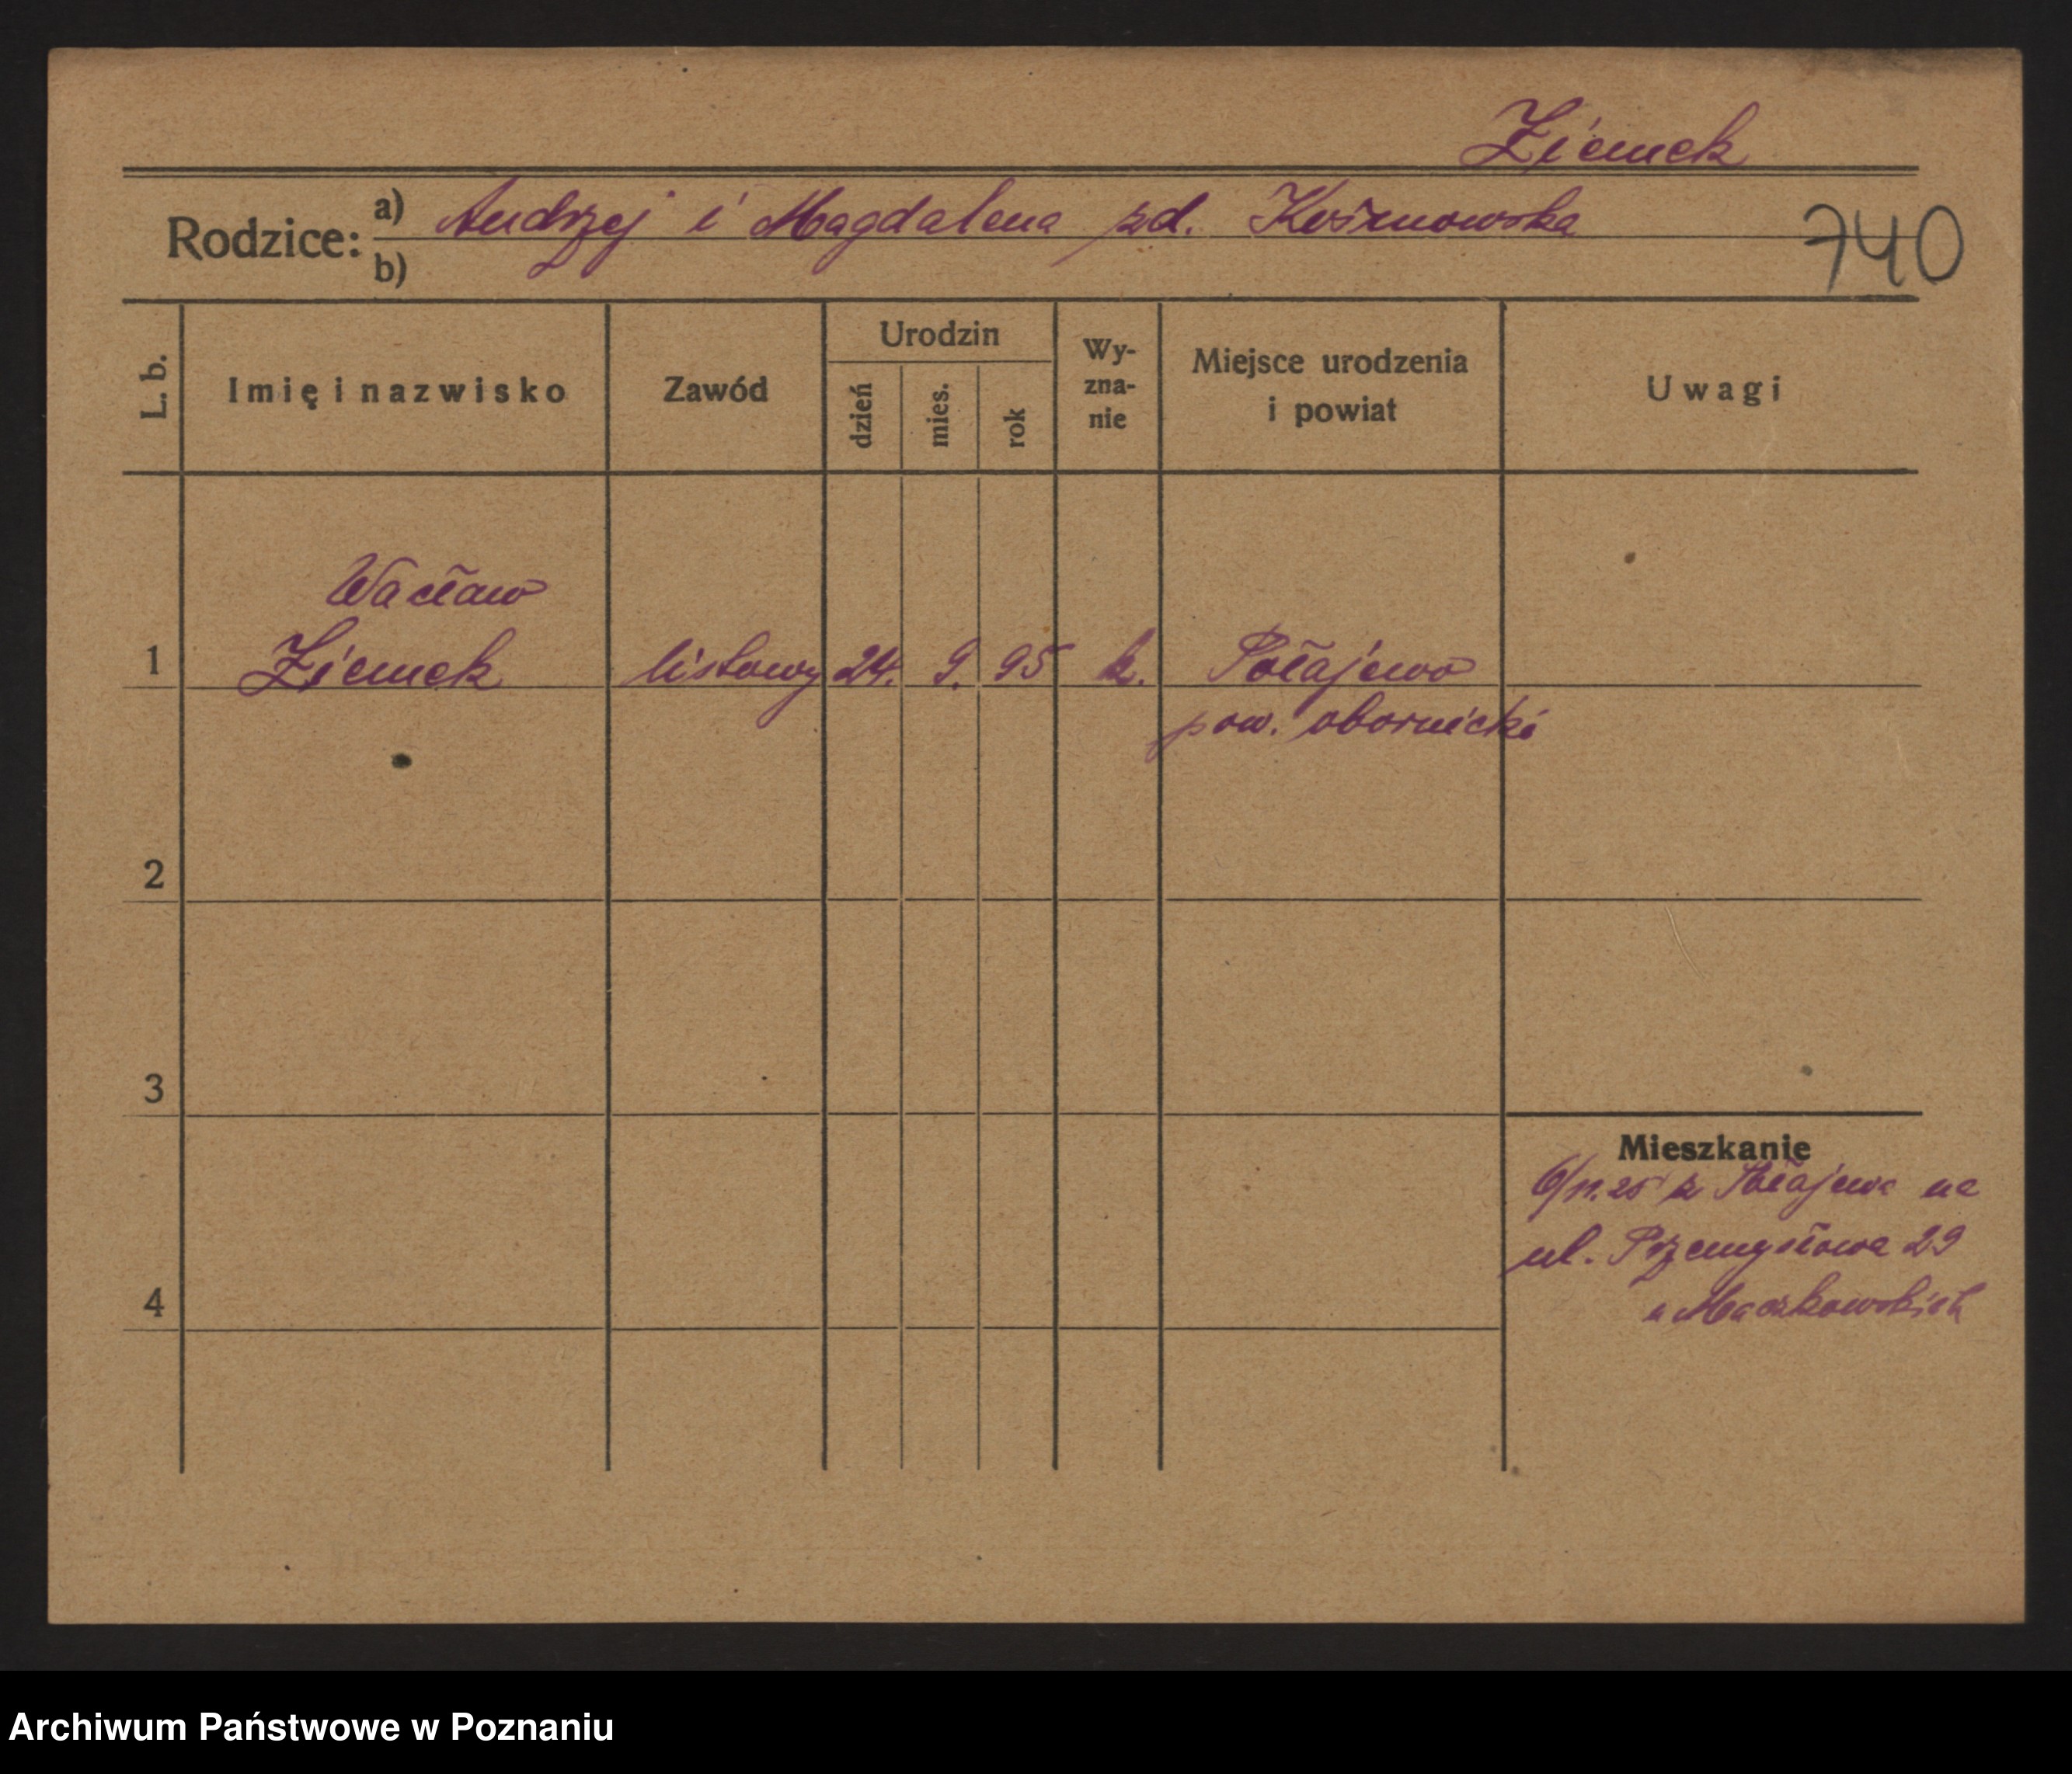 Ziemek
Rodzice: a) Andrzej i Magdalena zd.
b)
740
L. b.
Imię i nazwisko
Zawód
Urodzin
dzień
mies.
rok
Wy-
zna-
nie
Miejsce urodzenia
i powiat
Uwagi
Wacław
1 Ziemek listowy 24. 9. 95 k. Połajewo
pow. obornicki
2
3
Mieszkanie
6/11.25 z Połajewa na
ul. Przemysłowa 29
4
u Maczkowskich
Archiwum Państwowe w Poznaniu